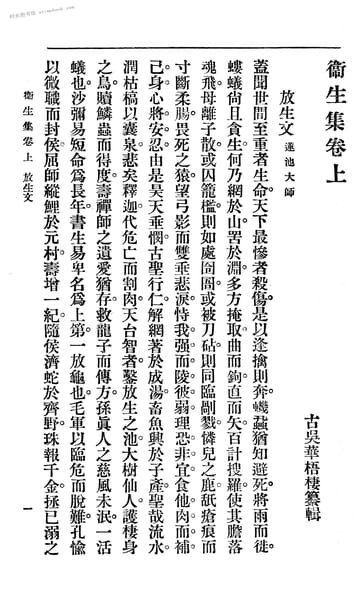 时光图书馆 vtimebook.com
衞生集卷上
古吳華梧棲纂輯
放生文 蓮池大師
蓋聞世間至重者生命。天下最慘者殺傷。是以逢擒則奔。蟣蝨猶知避死。將雨而徙。
螻蟻尙且貪生。何乃網於山。罟於淵。多方掩取。曲而鉤。直而矢。百計搜羅。使其膽落
魂飛。母離子散。或囚籠檻。則如處囹圄。或被刀砧。則同臨剮戮。憐兒之鹿。舐瘡痕而
寸斷柔腸。畏死之猿。望弓影而雙垂悲淚。恃我强而陵彼弱。理恐非宜。食他肉而補
己身。心將安忍。由是昊天垂憫。古聖行仁。解網著於成湯。畜魚興於子產。聖哉流水。
潤枯槁以囊泉。悲矣釋迦。代危亡而割肉。天台智者。鑿放生之池。大樹仙人。護棲身
之鳥。贖鱗蟲而得度。壽禪師之遺愛猶存。救龍子而傳方。孫眞人之慈風未泯。一活
蟻也。沙彌易短命爲長年。書生易卑名爲上第。一放龜也。毛軍以臨危而脫難。孔愉
以微職而封侯。屈師縱鯉於元村。壽增一紀。隨侯濟蛇於齊野。珠報千金。拯已溺之
衞生集卷上 放生文 一